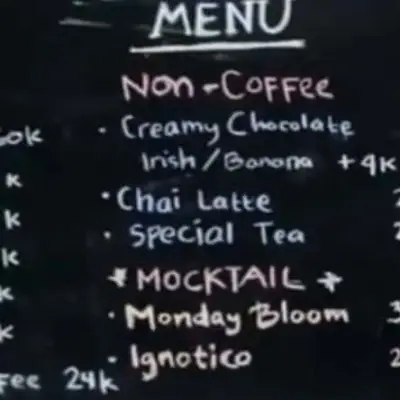 MENU
Non-Coffee
• Creamy Chocolate
Irish/Banana +4K
• Chai Latte
• Special Tea
* MOCKTAIL *
• Monday Bloom
• Ignotico
K
K
K
K
K
24K